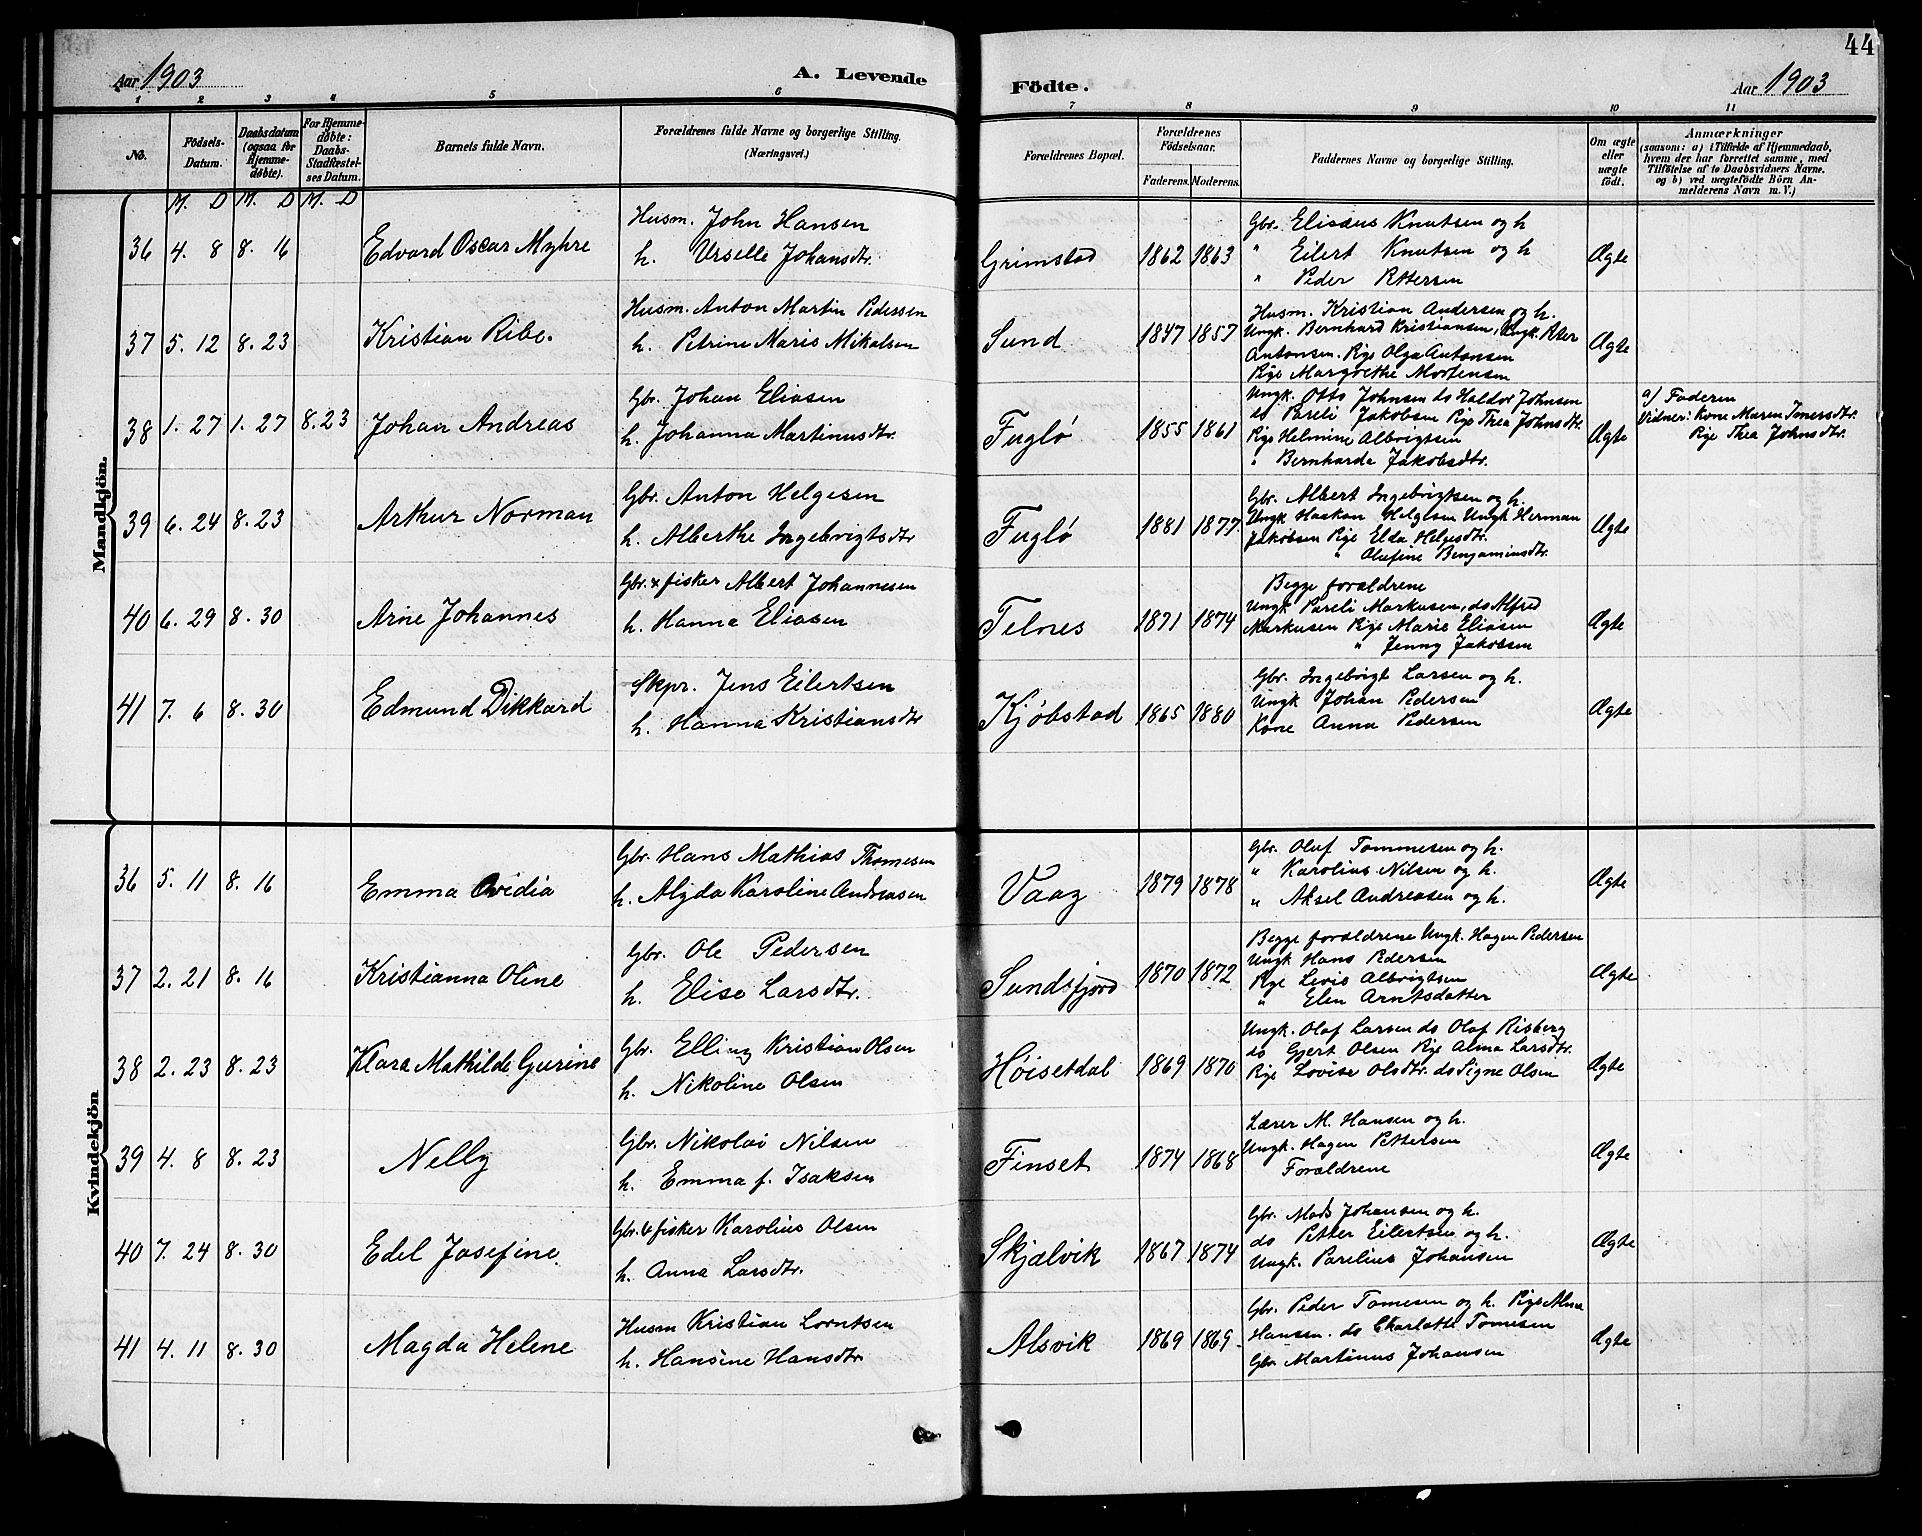 44
Aar 1903
A. Levende
Födte.
Aar 1903
1 2 3 4 5 6 7 8 9 10 11
No.
Födsels-
Datum.
Daabsdatum
(ogsaa for
Hjemme-
døbte).
For Hjemme-
døbte:
Daabs-
Stadfæstel-
ses Datum.
Barnets fulde Navn.
Forældrenes fulde Navne og borgerlige Stilling.
(Næringsvei.)
Forældrenes Bopæl.
Forældrenes
Födselsaar.
Faderens. Moderens.
Faddernes Navne og borgerlige Stilling.
Om ægte
eller
uægte
födt.
Anmærkninger
(saasom: a) i Tilfælde af Hjemmedaab,
hvem der har forrettet samme, med
Tilföielse af to Daabsvidners Navne,
og b) ved uægtefödte Börn An-
melderens Navn m. V.)
M. D M. D M. D
Mandkjön.
36 4. 8 8. 16
Edvard Oscar Myhre
Husm. John Hansen
h. Urselle Johansdtr.
Grimstad
1862 1863
Gbr. Eliseus Knutsen og h
" Eilert Knutsen og h
" Peder Pettersen
Ægte
37 5. 12 8. 23
Kristian Ribe.
Husm. Anton Martin Pedersen
h. Petrine Maris Mikalsen
Sund
1847 1857
Husm. Kristian Andersen og h.
Ungk. Bernhard Kristiansen, Ungk. Peter
Antonsen. Pige Olga Antonsen
Pige Margrethe Mortensen
Ægte
38 1. 27 1. 27 8. 23
Johan Andreas
Gbr. Johan Eliasen
h. Johanna Martinusdtr.
Fuglø
1855 1861
Ungk. Otto Johnsen do Haldor Johnsen
do Pareli Jakobsen Pige Thea Johnsdtr.
Pige Helmine Albrigtsen
" Bernharda Jakobsdtr.
Ægte
a) Faderen
Vidner: Kone Maren Tomesdtr.
Pige Thea Johnsdtr.
39 6. 24 8. 23
Arthur Norman
Gbr. Anton Helgesen
h. Alberthe Ingebrigtsdtr
Fuglø
1881 1877.
Gbr. Albert Ingebrigtsen og h.
Ungk Haakon Helgesen Ungk Herman
Jakobsen Pige Elda Helgesdtr.
" Olufine Benjaminsdtr.
Ægte
40 6. 29 8. 30
Arne Johannes
Gbr. & fisker Albert Johannesen
h. Hanna Eliasen
Telnes
1871 1874
Begge forældrene
Ungk Pareli Markusen, do Alfred
Markusen Pige Marie Eliasen
" Jenny Jakobsen
Ægte
41 7. 6 8. 30
Edmund Dikkard
Skpr. Jens Eilertsen
h. Hanna Kristiansdtr
Kjøbstad
1865 1880
Gbr. Ingebrigt Larsen og h.
Ungk Johan Pedersen
Kone Anna Pedersen
Ægte
Kvindekjön
36 5. 11 8. 16
Emma Ovidia
Gbr. Hans Mathias Thomesen
h. Alyda Karoline Andreasen
Vaag
1879 1878
Gbr. Oluf Tommesen og h.
" Karolius Nilsen og h.
" Aksel Andreasen og h.
Ægte
37 2. 21 8. 16
Kristianna Oline
Gbr. Ole Pedersen
h. Elise Larsdtr.
Sundsfjord
1870 1872
Begge forældrene Ungk. Hagen Pedersen
Ungk Hans Pedersen
Pige Lovis Albrigtsen
" Elen Arntsdatter
Ægte
38 2. 23 8. 23
Klara Mathilde Gurine
Gbr. Elling Kristian Olsen
h. Nikoline Olsen
Høisetdal
1869 1870
Ungk. Olaf Larsen do Olaf Risberg
do Gjert Olsen Pige Alma Larsdtr.
Pige Lovise Olsdtr. do Signe Olsen
Ægte
39 4. 8 8. 23
Nelly
Gbr. Nikolai Nilsen
h. Emma f. Isaksen
Finset
1874 1868
Lærer M. Hansen og h.
Ungk. Hagen Pettersen
Forældrene
Ægte
40 7. 24 8. 30
Edel Josefine.
Gbr. & fisker Karolius Olsen
h. Anna Larsdtr.
Skjælvik
1867 1874
Gbr. Mads Johansen og h.
do Petter Eilertsen og h.
Ungk. Parelius Johansen
Ægte
41 4. 11 8. 30
Magda Helene
Husm Kristian Lorntsen
h. Hansine Hansdtr.
Alsvik
1869 1869.
Gbr. Peder Tomesen og h. Pige Alma
Hansen. do Charlotte Tomesen
Gbr Martinus Johansen
Ægte